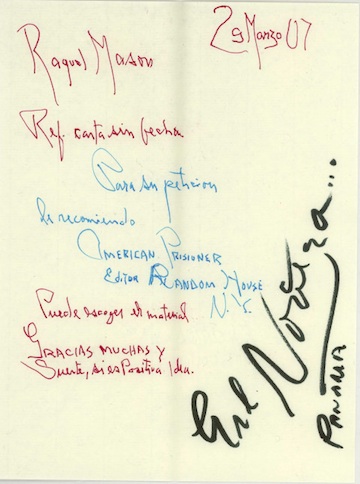 Raquel Mason
29 Marzo 07
Ref. carta sin fecha.
Para su peticion
le recomiendo
AMERICAN PRISIONER
EDITOR RANDOM HOUSE
N.Y.
Puede escoger el material
GRACIAS MUCHAS Y
Suerte, si es Positiva Ida.
Gral. Noriega...
PANAMA